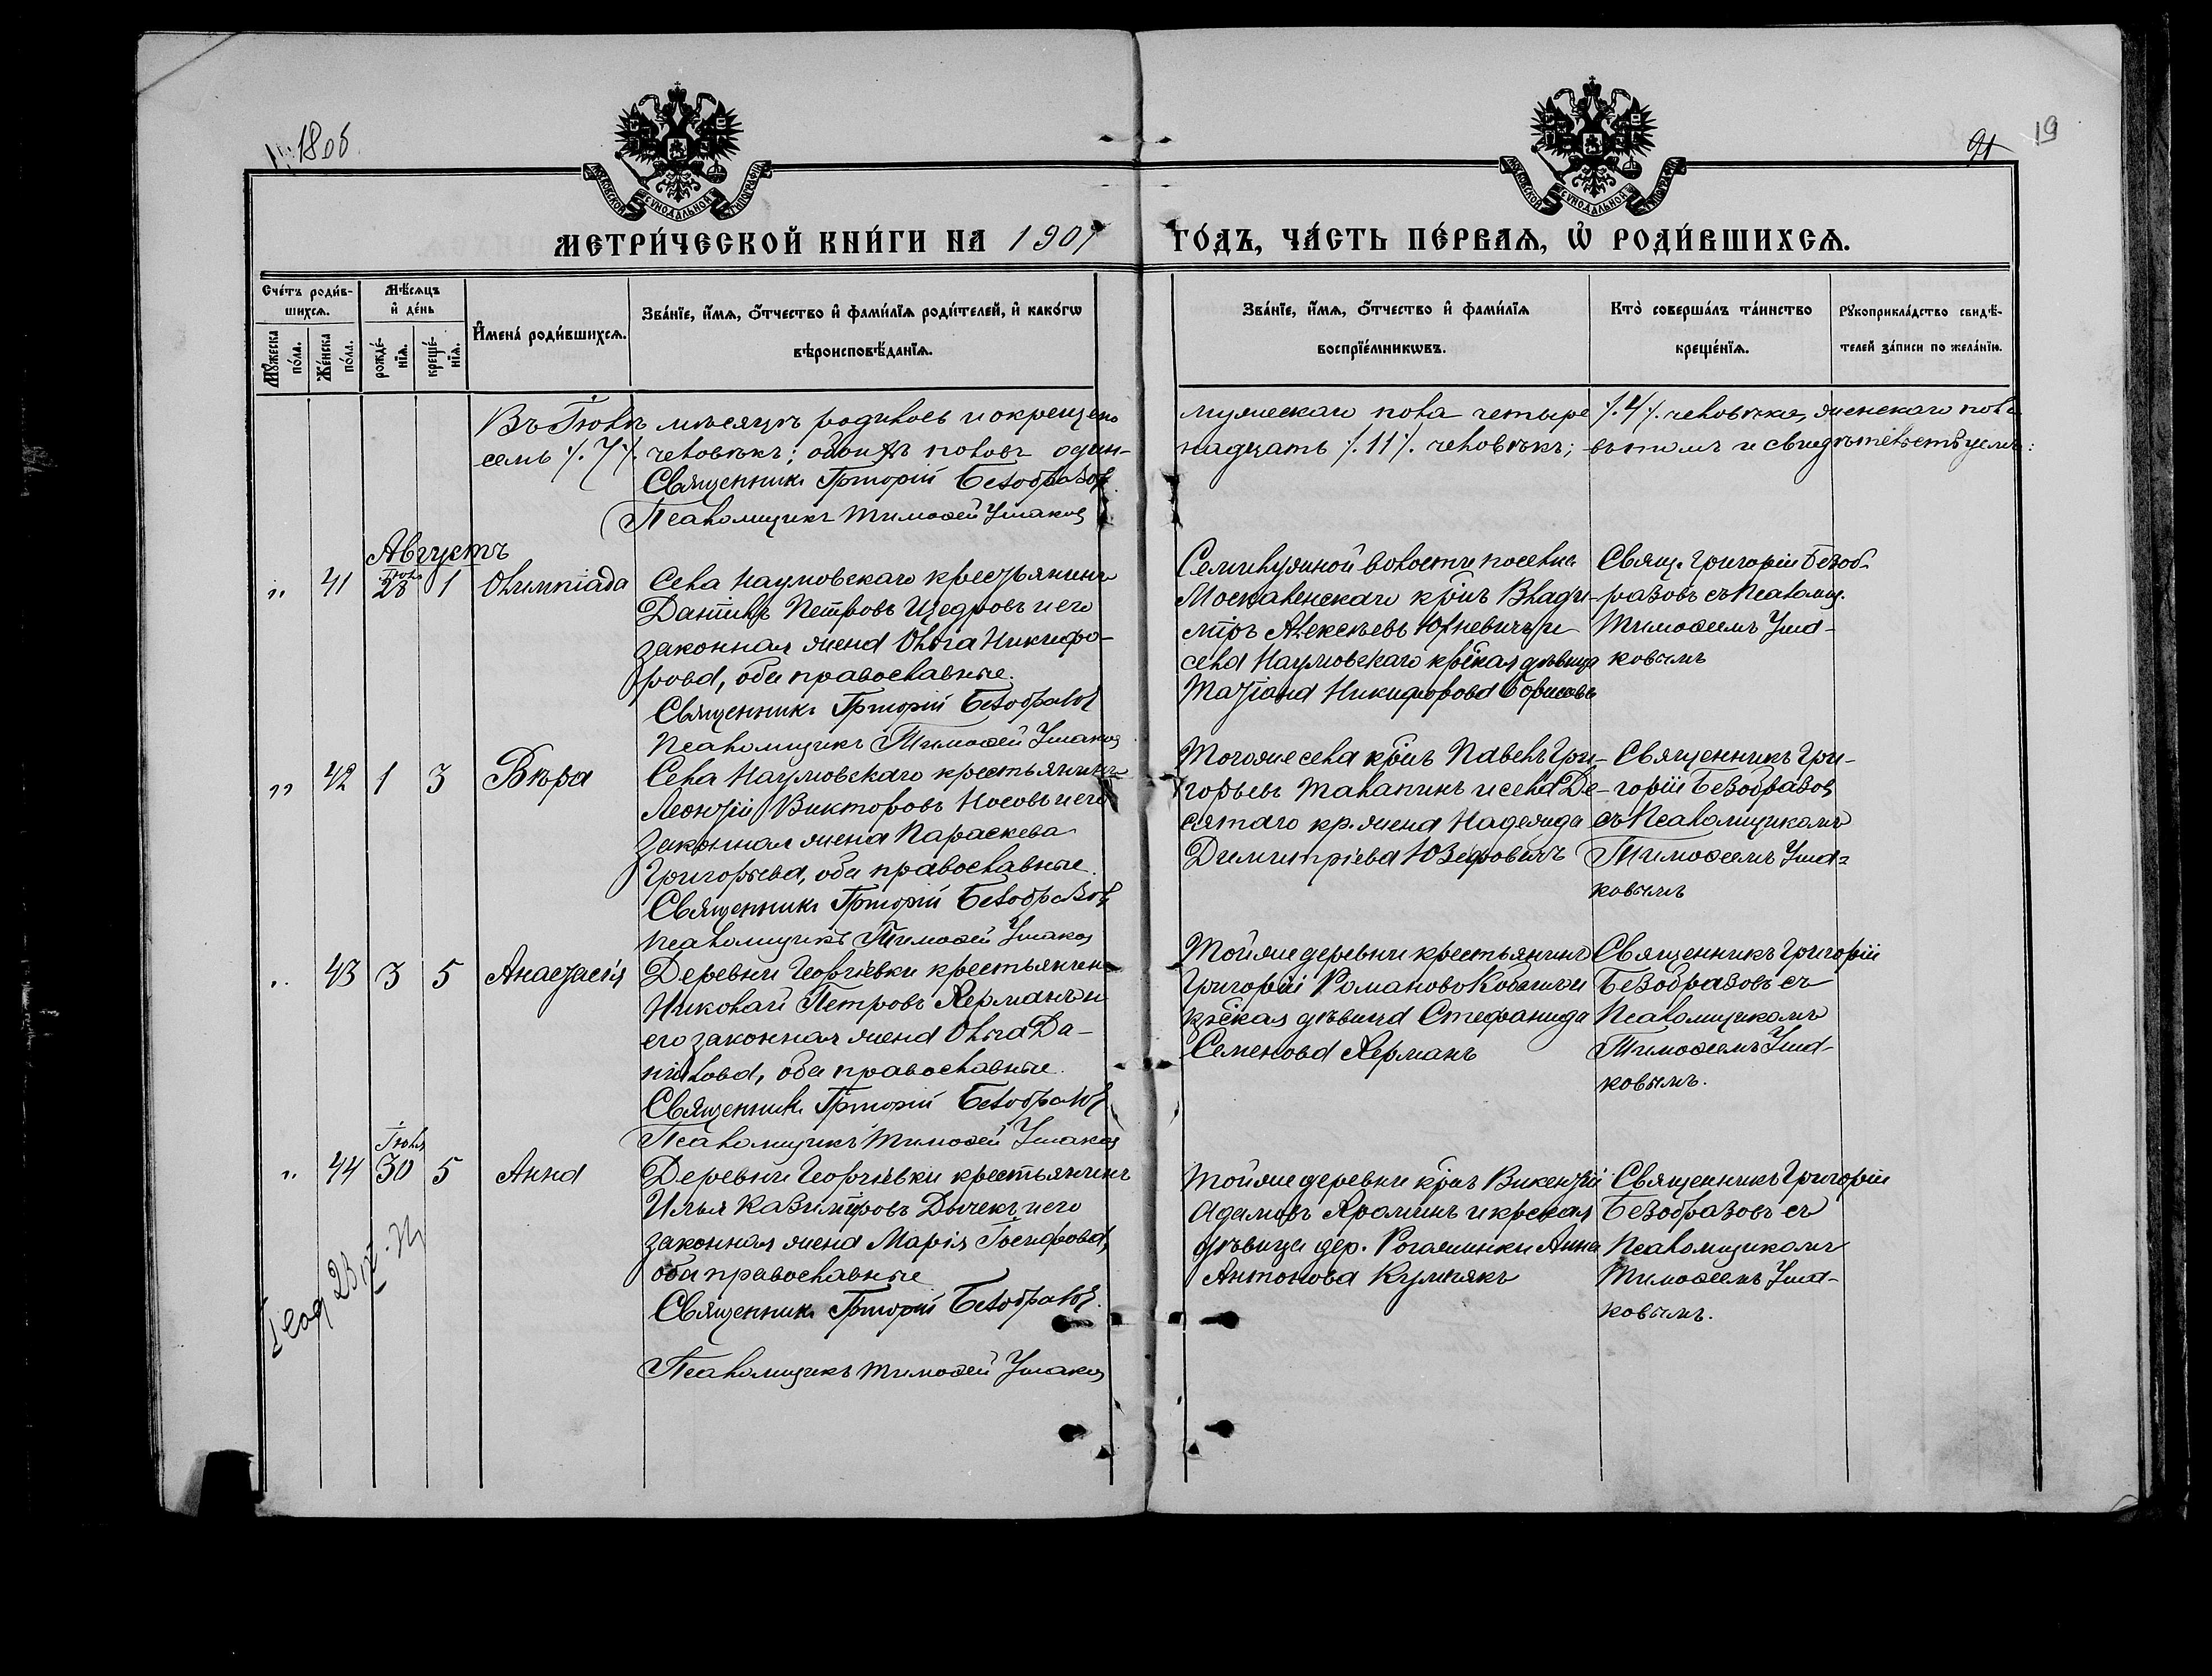 1806
91 19
МОСКОВСКОЙ СѴНОДАЛЬНОЙ ТИПОГРАФІИ
МОСКОВСКОЙ СѴНОДАЛЬНОЙ ТИПОГРАФІИ
МЕТРИ́ЧЕСКОЙ КНИ́ГИ НА 1907 ГО́ДЪ, ЧА́СТЬ ПЕ́РВАѦ, Ѽ РОДИ́ВШИХСѦ.
Сче́тъ роди́в-
шихсѧ.
Мꙋ́жеска по́ла.
Же́нска по́ла.
Мѣ́сѧцъ и҆ де́нь
рожде́-нїѧ.
креще́-нїѧ.
И҆мена̀ роди́вшихсѧ.
Зва́нїе, и҆́мѧ, ѻ҆́тчество и҆ фами́лїѧ роди́телей, и҆ како́гѡ
вѣроисповѣ́данїѧ.
Зва́нїе, и҆́мѧ, ѻ҆́тчество и҆ фами́лїѧ
воспрїе́мникѡвъ.
Кто̀ соверша́лъ та́инство
креще́нїѧ.
Рꙋкоприкла́дство свидѣ́-
телей за́писи по жела́нїю.
Въ Іюлѣ мѣсяцѣ родилось и окрещено мужескаго пола четыре /.4/. человѣка, женскаго пола
семь /.7/. человѣкъ; обоихъ половъ один-надцать /.11/. человѣкъ; въ томъ и свидѣтельствуемъ:
Священникъ Григорій Безобразовъ
Псаломщикъ Тимоѳей Ушаковъ
Августъ
" 41 Іюля 28 1 Олимпіада
Села Наумовскаго крестьянинъ
Даніилъ Петровъ Щедровъ и его
законная жена Ольга Никифо-
рова, оба православные.
Священникъ Григорій Безобразовъ
Псаломщикъ Тимоѳей Ушаковъ
Семилужной волости поселка
Москаленскаго кр̃нъ Влади-
міръ Алексѣевъ Юхневичъ и
села Наумовскаго кр̃ская дѣвица
Татіана Никифорова Борисова
Свящ. Григорій Безоб-
разовъ съ Псаломщ.
Тимоѳеемъ Уша-
ковымъ
" 42 1 3 Вѣра
Села Наумовскаго крестьянинъ
Леонтій Викторовъ Носовъ и его
законная жена Параскева
Григорьева, оба православные.
Священникъ Григорій Безобразовъ
Псаломщикъ Тимоѳей Ушаковъ
Тогоже села кр̃нъ Павелъ Гри-
горьевъ Талапинъ и села Де-
сятаго кр. жена Надежда
Димитріева Юзефовичъ
Священникъ Гри-
горій Безобразовъ
съ Псаломщикомъ
Тимоѳеемъ Уша-
ковымъ
" 43 3 5 Анастасія
Деревни Георгіевки крестьянинъ
Николай Петровъ Жерманъ и
его законная жена Ольга Да-
нилова, оба православные.
Священникъ Григорій Безобразовъ
Псаломщикъ Тимоѳей Ушаковъ
Тойже деревни крестьянинъ
Григорій Романово и
кр̃ская дѣвица Стефанида
Семенова Жерманъ
Священникъ Григорій
Безобразовъ съ
Псаломщикомъ
Тимоѳеемъ Уша-
ковымъ.
" 44 Іюля 30 5 Анна
Деревни Георгіевки крестьянинъ
Илья Казиміровъ и его
законная жена Марія Іосифова,
оба православные
Священникъ Григорій Безобразовъ.
Псаломщикъ Тимоѳей Ушаковъ
Тойже деревни кр̃нъ Викентій
Адамовъ и кр̃ская
дѣвица дер. Рогажинки Анна
Антонова
Священникъ Григорій
Безобразовъ съ
Псаломщикомъ
Тимоѳеемъ Уша-
ковымъ.